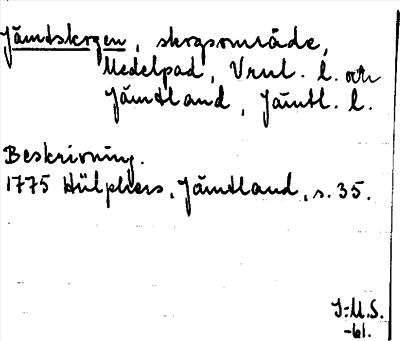 Jämtskogen, skogsområde,
Medelpad, Vrnl. l. och
Jämtland, Jämtl. l.
Beskrivning.
1775 Hülphers, Jämtland, s. 35.
J-M.S.
-61.